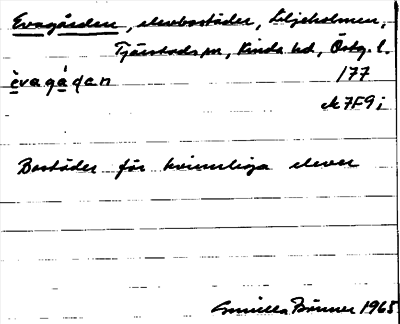 Evagården, elevbostäder, Liljeholmen,
Tjärstads sn, Kinda hd, Östg. l.
èvagạ́dan 177
ek 7F9i
Bostäder för kvinnliga elever
Gunilla Börner 1965